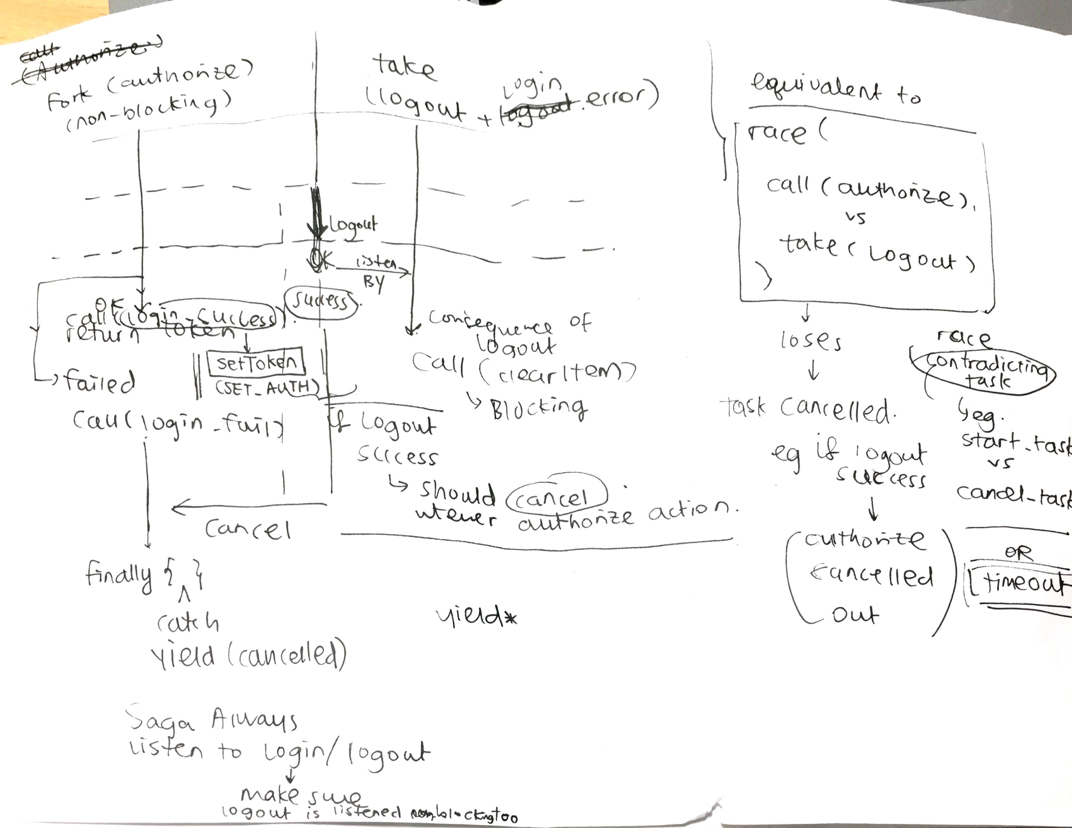 call
(Authorize)
fork (authorize)
(non-blocking)
take
(logout + logout login error)
Logout
OK
listen
BY
OK
call (login_success)
return token
success
setToken
(SET_AUTH)
failed
call(login_fail)
Consequence of
logout
call (clearItem)
Blocking
if Logout
success
should cancel
authorize action.
cancel
finally { }
catch
yield (cancelled)
yield*
Saga Always
listen to login/logout
make sure
logout is listened nonblocking too
equivalent to
race (
call (authorize),
vs
take (Logout)
)
loses
task cancelled.
eg if logout
success
authorize
cancelled
out
race
contradicting
task
eg.
start_task
vs
cancel_task
OR
timeout